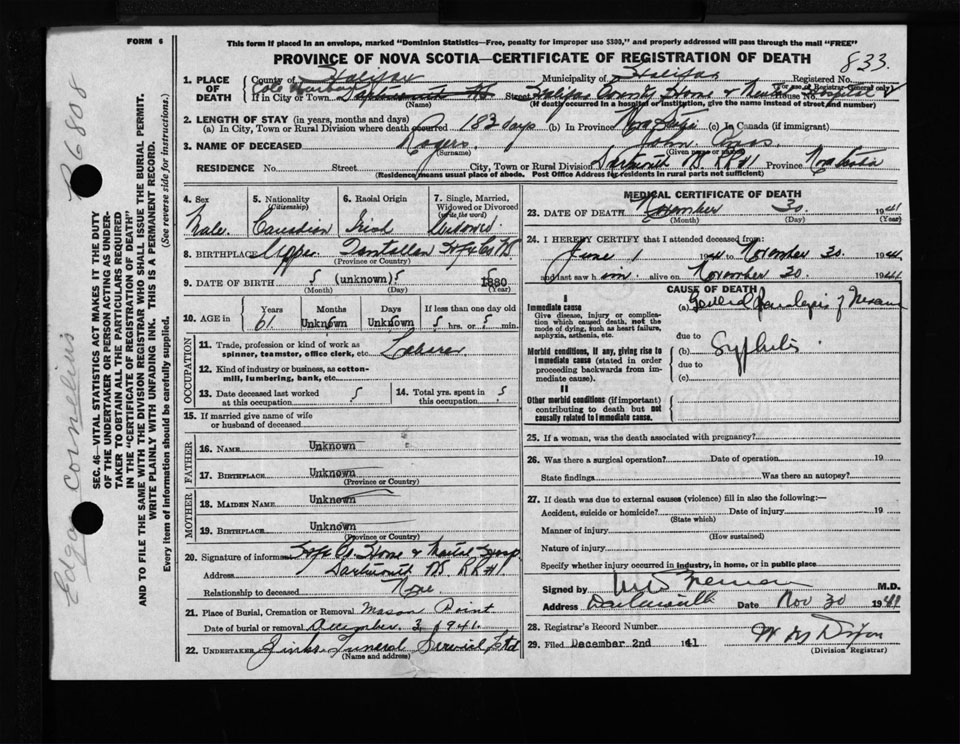 FORM 6
This form if placed in an envelope, marked "Dominion Statistics—Free, penalty for improper use $300," and properly addressed will pass through the mail "FREE"
PROVINCE OF NOVA SCOTIA—CERTIFICATE OF REGISTRATION OF DEATH
833
1. PLACE OF DEATH County of Halifax Municipality of Halifax Registered No.
(For use of Registrar General only)
Cole Harbour
If in City or Town Dartmouth NS Street Halifax County Home & House No. Hospital
(Name) (If death occurred in a hospital or institution, give the name instead of street and number)
2. LENGTH OF STAY (in years, months and days)
(a) In City, Town or Rural Division where death occurred 183 days (b) In Province Nova Scotia (c) In Canada (if immigrant)
3. NAME OF DECEASED Rogers John
(Surname) (Given name or names)
RESIDENCE No. Street City, Town or Rural Division Dartmouth NS RR#1 Province Nova Scotia
(Residence means usual place of abode. Post Office Address for residents of rural parts not sufficient)
4. Sex Male.
5. Nationality (Citizenship) Canadian
6. Racial Origin Irish
7. Single, Married, Widowed or Divorced (write the word) Widowed
8. BIRTHPLACE Upper Tantallon Hfx Co NS
(Province or Country)
9. DATE OF BIRTH (unknown) 1880
(Month) (Day) (Year)
10. AGE in Years 61 Months Unknown Days Unknown If less than one day old hrs. or min.
OCCUPATION
11. Trade, profession or kind of work as spinner, teamster, office clerk, etc. Laborer
12. Kind of industry or business, as cotton-mill, lumbering, bank, etc.
13. Date deceased last worked at this occupation
14. Total yrs. spent in this occupation
15. If married give name of wife or husband of deceased
FATHER
16. NAME Unknown
17. BIRTHPLACE Unknown
(Province or Country)
MOTHER
18. MAIDEN NAME Unknown
19. BIRTHPLACE Unknown
(Province or Country)
20. Signature of informant Hfx Co. Home & Mental Hosp
Address Dartmouth NS RR#1
Relationship to deceased None
21. Place of Burial, Cremation or Removal Mason Point
Date of burial or removal December 3, 1941.
22. UNDERTAKER Funeral Service Ltd
(Name and address)
MEDICAL CERTIFICATE OF DEATH
23. DATE OF DEATH November 30 1941
(Month) (Day) (Year)
24. I HEREBY CERTIFY that I attended deceased from
June 1 1941 to November 30. 1941
and last saw him alive on November 30. 1941
CAUSE OF DEATH
I
Immediate cause
Give disease, injury or complication which caused death, not the mode of dying, such as heart failure, asphyxia, asthenia, etc.
(a) General Paralysis of
due to
Morbid conditions, if any, giving rise to immediate cause (stated in order proceeding backwards from immediate cause).
(b) Syphilis
due to
(c)
II
Other morbid conditions (if important) contributing to death but not causally related to immediate cause.
25. If a woman, was the death associated with pregnancy?
26. Was there a surgical operation? Date of operation 19
State findings Was there an autopsy?
27. If death was due to external causes (violence) fill in also the following:—
Accident, suicide or homicide? Date of injury 19
(State which)
Manner of injury
(How sustained)
Nature of injury
Specify whether injury occurred in industry, in home, or in public place
Signed by M.D.
Address Dartmouth Date Nov 30 1941
28. Registrar's Record Number
29. Filed December 2nd 1941
(Division Registrar)
SEC. 46—VITAL STATISTICS ACT MAKES IT THE DUTY
OF THE UNDERTAKER OR PERSON ACTING AS UNDERTAKER TO OBTAIN ALL THE PARTICULARS REQUIRED
IN THE "CERTIFICATE OF REGISTRATION OF DEATH"
AND TO FILE THE SAME WITH THE DIVISION REGISTRAR WHO SHALL ISSUE THE BURIAL PERMIT.
WRITE PLAINLY WITH UNFADING INK. THIS IS A PERMANENT RECORD.
Every item of information should be carefully supplied. (See reverse side for instructions.)